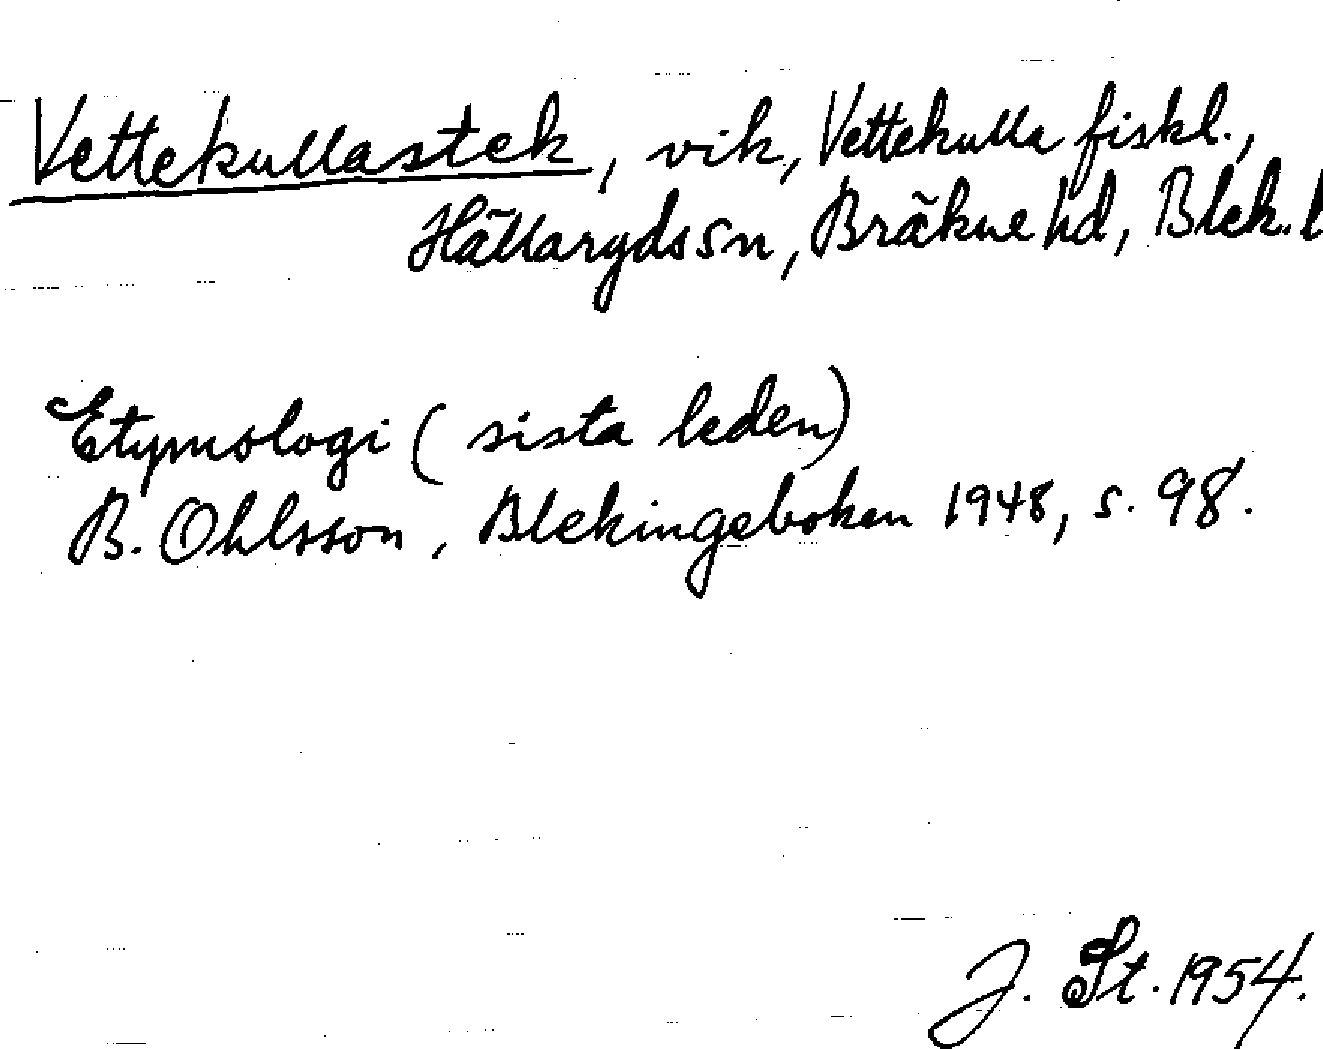 Vettekullastek, vik, Vettekulla fiskl.,
Hällaryds sn, Bräkne hd, Blek. l
Etymologi (sista leden)
B. Ohlsson, Blekingeboken 1948, s. 98.
J. St. 1954.